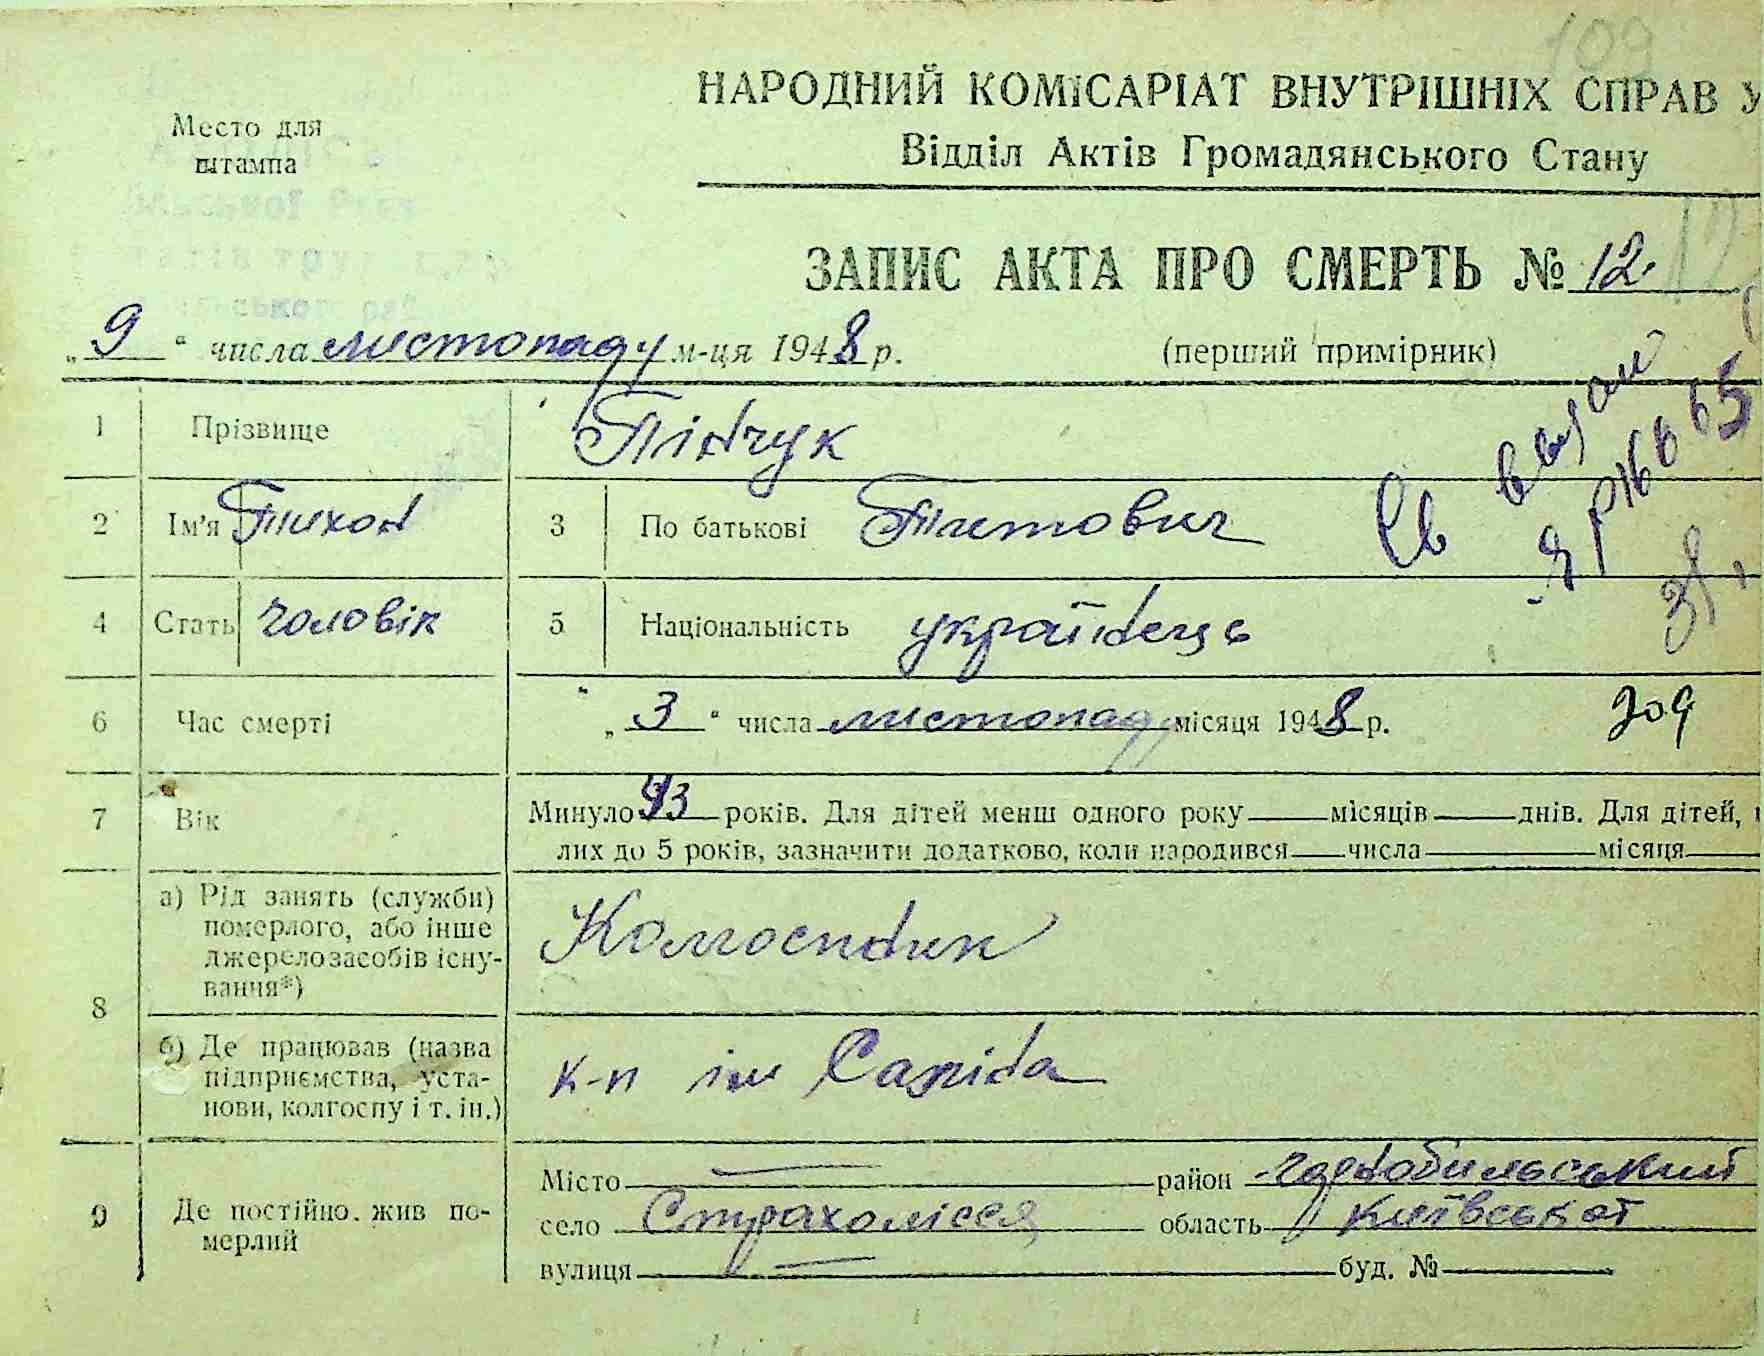 109
НАРОДНИЙ КОМІСАРІАТ ВНУТРІШНІХ СПРАВ У
Место для
штампа
Відділ Актів Громадянського Стану
ЗАПИС АКТА ПРО СМЕРТЬ № 12. 12
„ 9 “ числа листопаду м-ця 1948 р. (перший примірник)
1 Прізвище Пінчук
2 Ім'я Тихон 3 По батькові Титович
Св видан
ЯР 16665
4 Стать чоловік 5 Національність українець
6 Час смерті „ 3 “ числа листопаду місяця 1948 р. 209
7 Вік Минуло 93 років. Для дітей менш одного року місяців днів. Для дітей,
лих до 5 років, зазначити додатково, коли народився числа місяця
8 а) Рід занять (служби)
померлого, або інше
джерело засобів існу-
вання*)
Колгоспник
б) Де працював (назва
підприємства, уста-
нови, колгоспу і т. ін.)
к-п ім
9 Де постійно жив по-
мерлий
Місто район Чорнобильський
село Страхолісся область Київської
вулиця буд. №